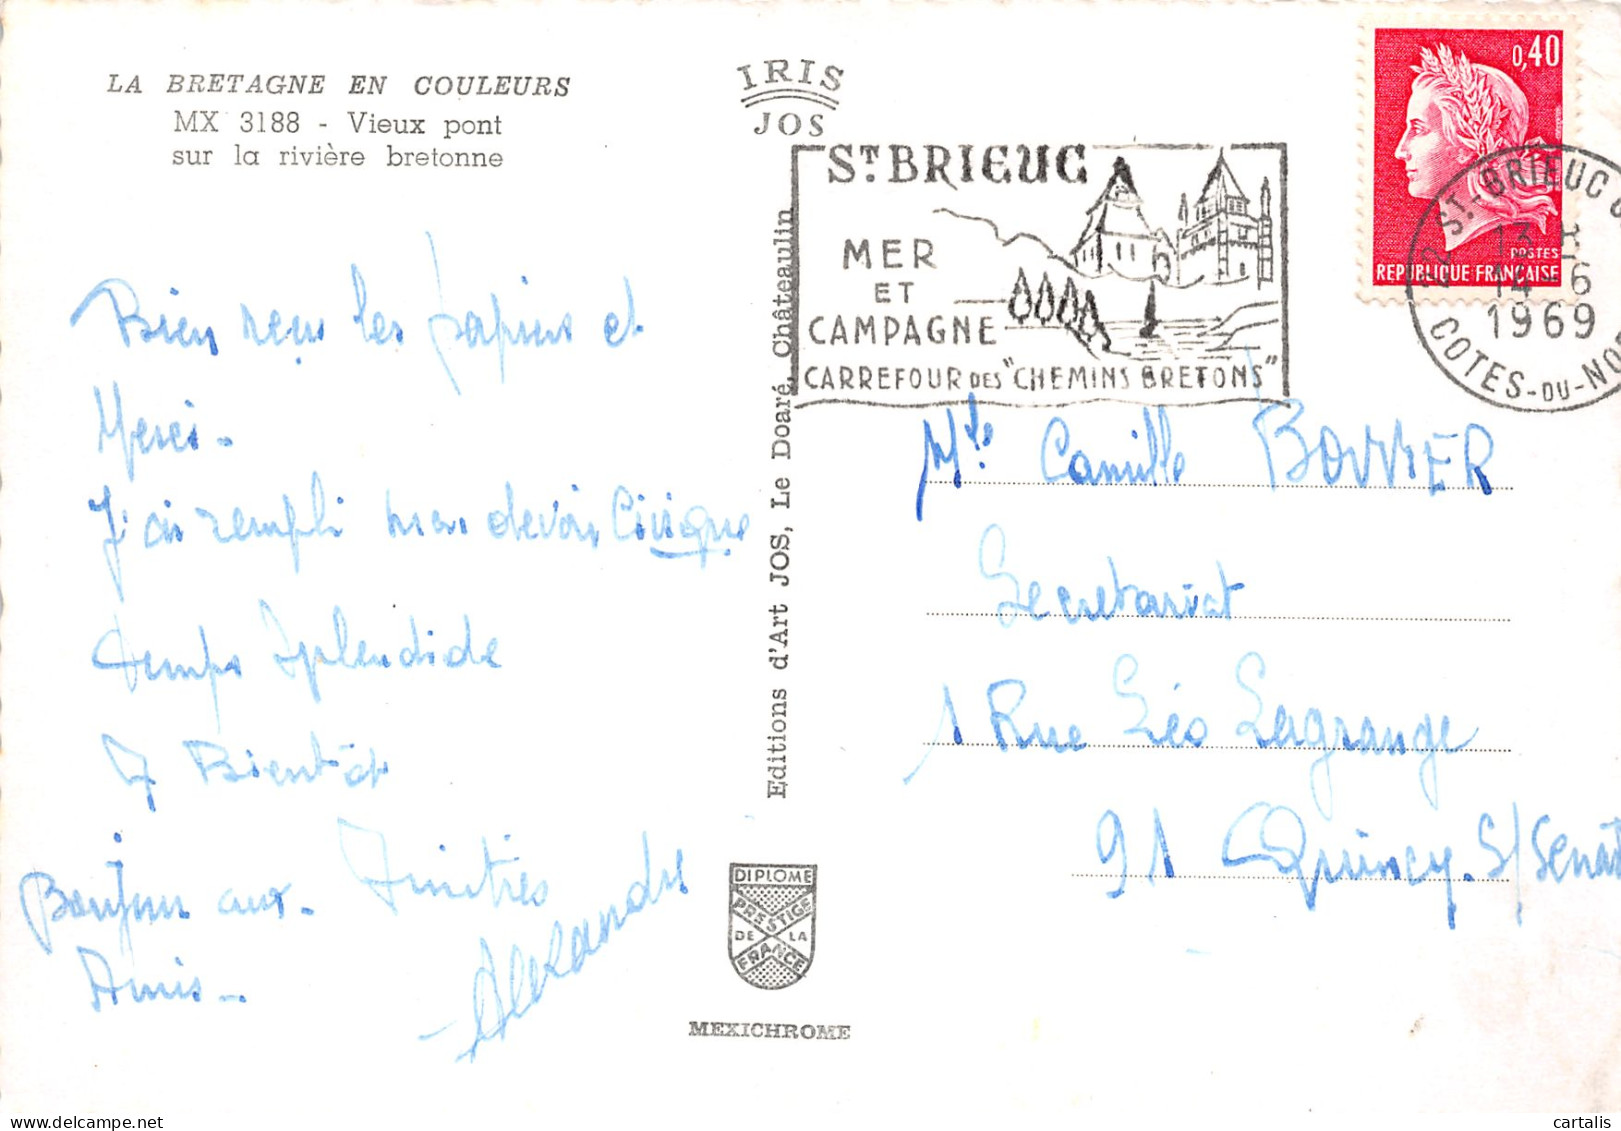 LA BRETAGNE EN COULEURS
MX 3188 - Vieux pont
sur la rivière bretonne
IRIS
JOS
ST. BRIEUC
MER
ET
CAMPAGNE
CARREFOUR DES "CHEMINS BRETONS"
0,40
POSTES
REPUBLIQUE FRANÇAISE
22 ST-BRIEUC
13 H
14-6
1969
COTES-DU-NOR
Bien reçu les papiers et
Merci-
J'ai rempli mon devoir Civique
temps splendide
A Bientôt
Bonjour aux
Amis-
Alexandre
Editions d'Art JOS, Le Doaré, Châteaulin
DIPLOME
PRESTIGE
DE LA
FRANCE
MEXICHROME
Mlle Camille BOUVIER
Secretariat
1 Rue Léo Lagrange
91 Quincy. S/Senart
cartalis @ www.delcampe.net